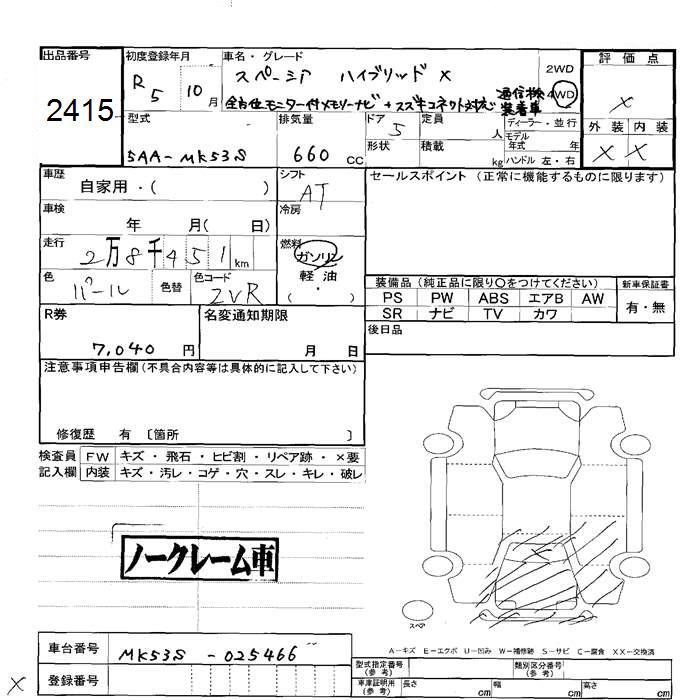 出品番号
2415
初度登録年月
R5 10月
車名・グレード
スペーシア ハイブリッド X
全方位モニター付メモリーナビ+スズキコネクト対応通信機装着車
2WD
4WD
評価点
X
外装 内装
X X
型式
5AA-MK53S
排気量
660 CC
ドア 5
形状
定員 人
積載 kg
ディーラー・並行
モデル年式 年
ハンドル 左・右
車歴
自家用・( )
シフト
AT
セールスポイント (正常に機能するものに限ります)
車検
年 月( 日)
冷房
走行
2万8千451km
燃料
ガソリン
軽油
( ・ )
色
パール
色替
色コード
ZVR
装備品 (純正品に限り○をつけてください)
PS PW ABS エアB AW
SR ナビ TV カワ
新車保証書
有・無
R券
7,040 円
名変通知期限
月 日
後日品
注意事項申告欄 (不具合内容等は具体的に記入して下さい)
修復歴 有 〔箇所 〕
検査員記入欄
FW キズ・飛石・ヒビ割・リペア跡・×要
内装 キズ・汚レ・コゲ・穴・スレ・キレ・破レ
ノークレーム車
スペア
A-キズ E-エクボ U-凹み W-補修跡 S-サビ C-腐食 XX-交換済
車台番号
MK53S -025466
型式指定番号(参考)
類別区分番号(参考)
X
登録番号
車車証明用(参考)
長さ cm
幅 cm
高さ cm